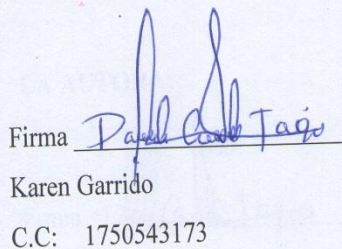 Firma
Karen Garrido
C.C: 1750543173